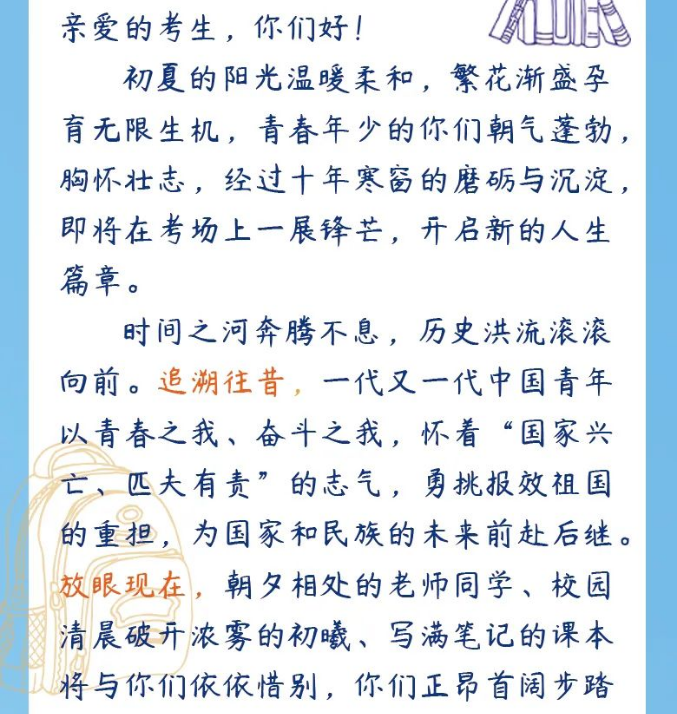 亲爱的考生，你们好！
初夏的阳光温暖柔和，繁花渐盛孕
育无限生机，青春年少的你们朝气蓬勃，
胸怀壮志，经过十年寒窗的磨砺与沉淀，
即将在考场上一展锋芒，开启新的人生
篇章。
时间之河奔腾不息，历史洪流滚滚
向前。追溯往昔，一代又一代中国青年
以青春之我、奋斗之我，怀着“国家兴
亡、匹夫有责”的志气，勇挑报效祖国
的重担，为国家和民族的未来前赴后继。
放眼现在，朝夕相处的老师同学、校园
清晨破开浓雾的初曦、写满笔记的课本
将与你们依依惜别，你们正昂首阔步踏